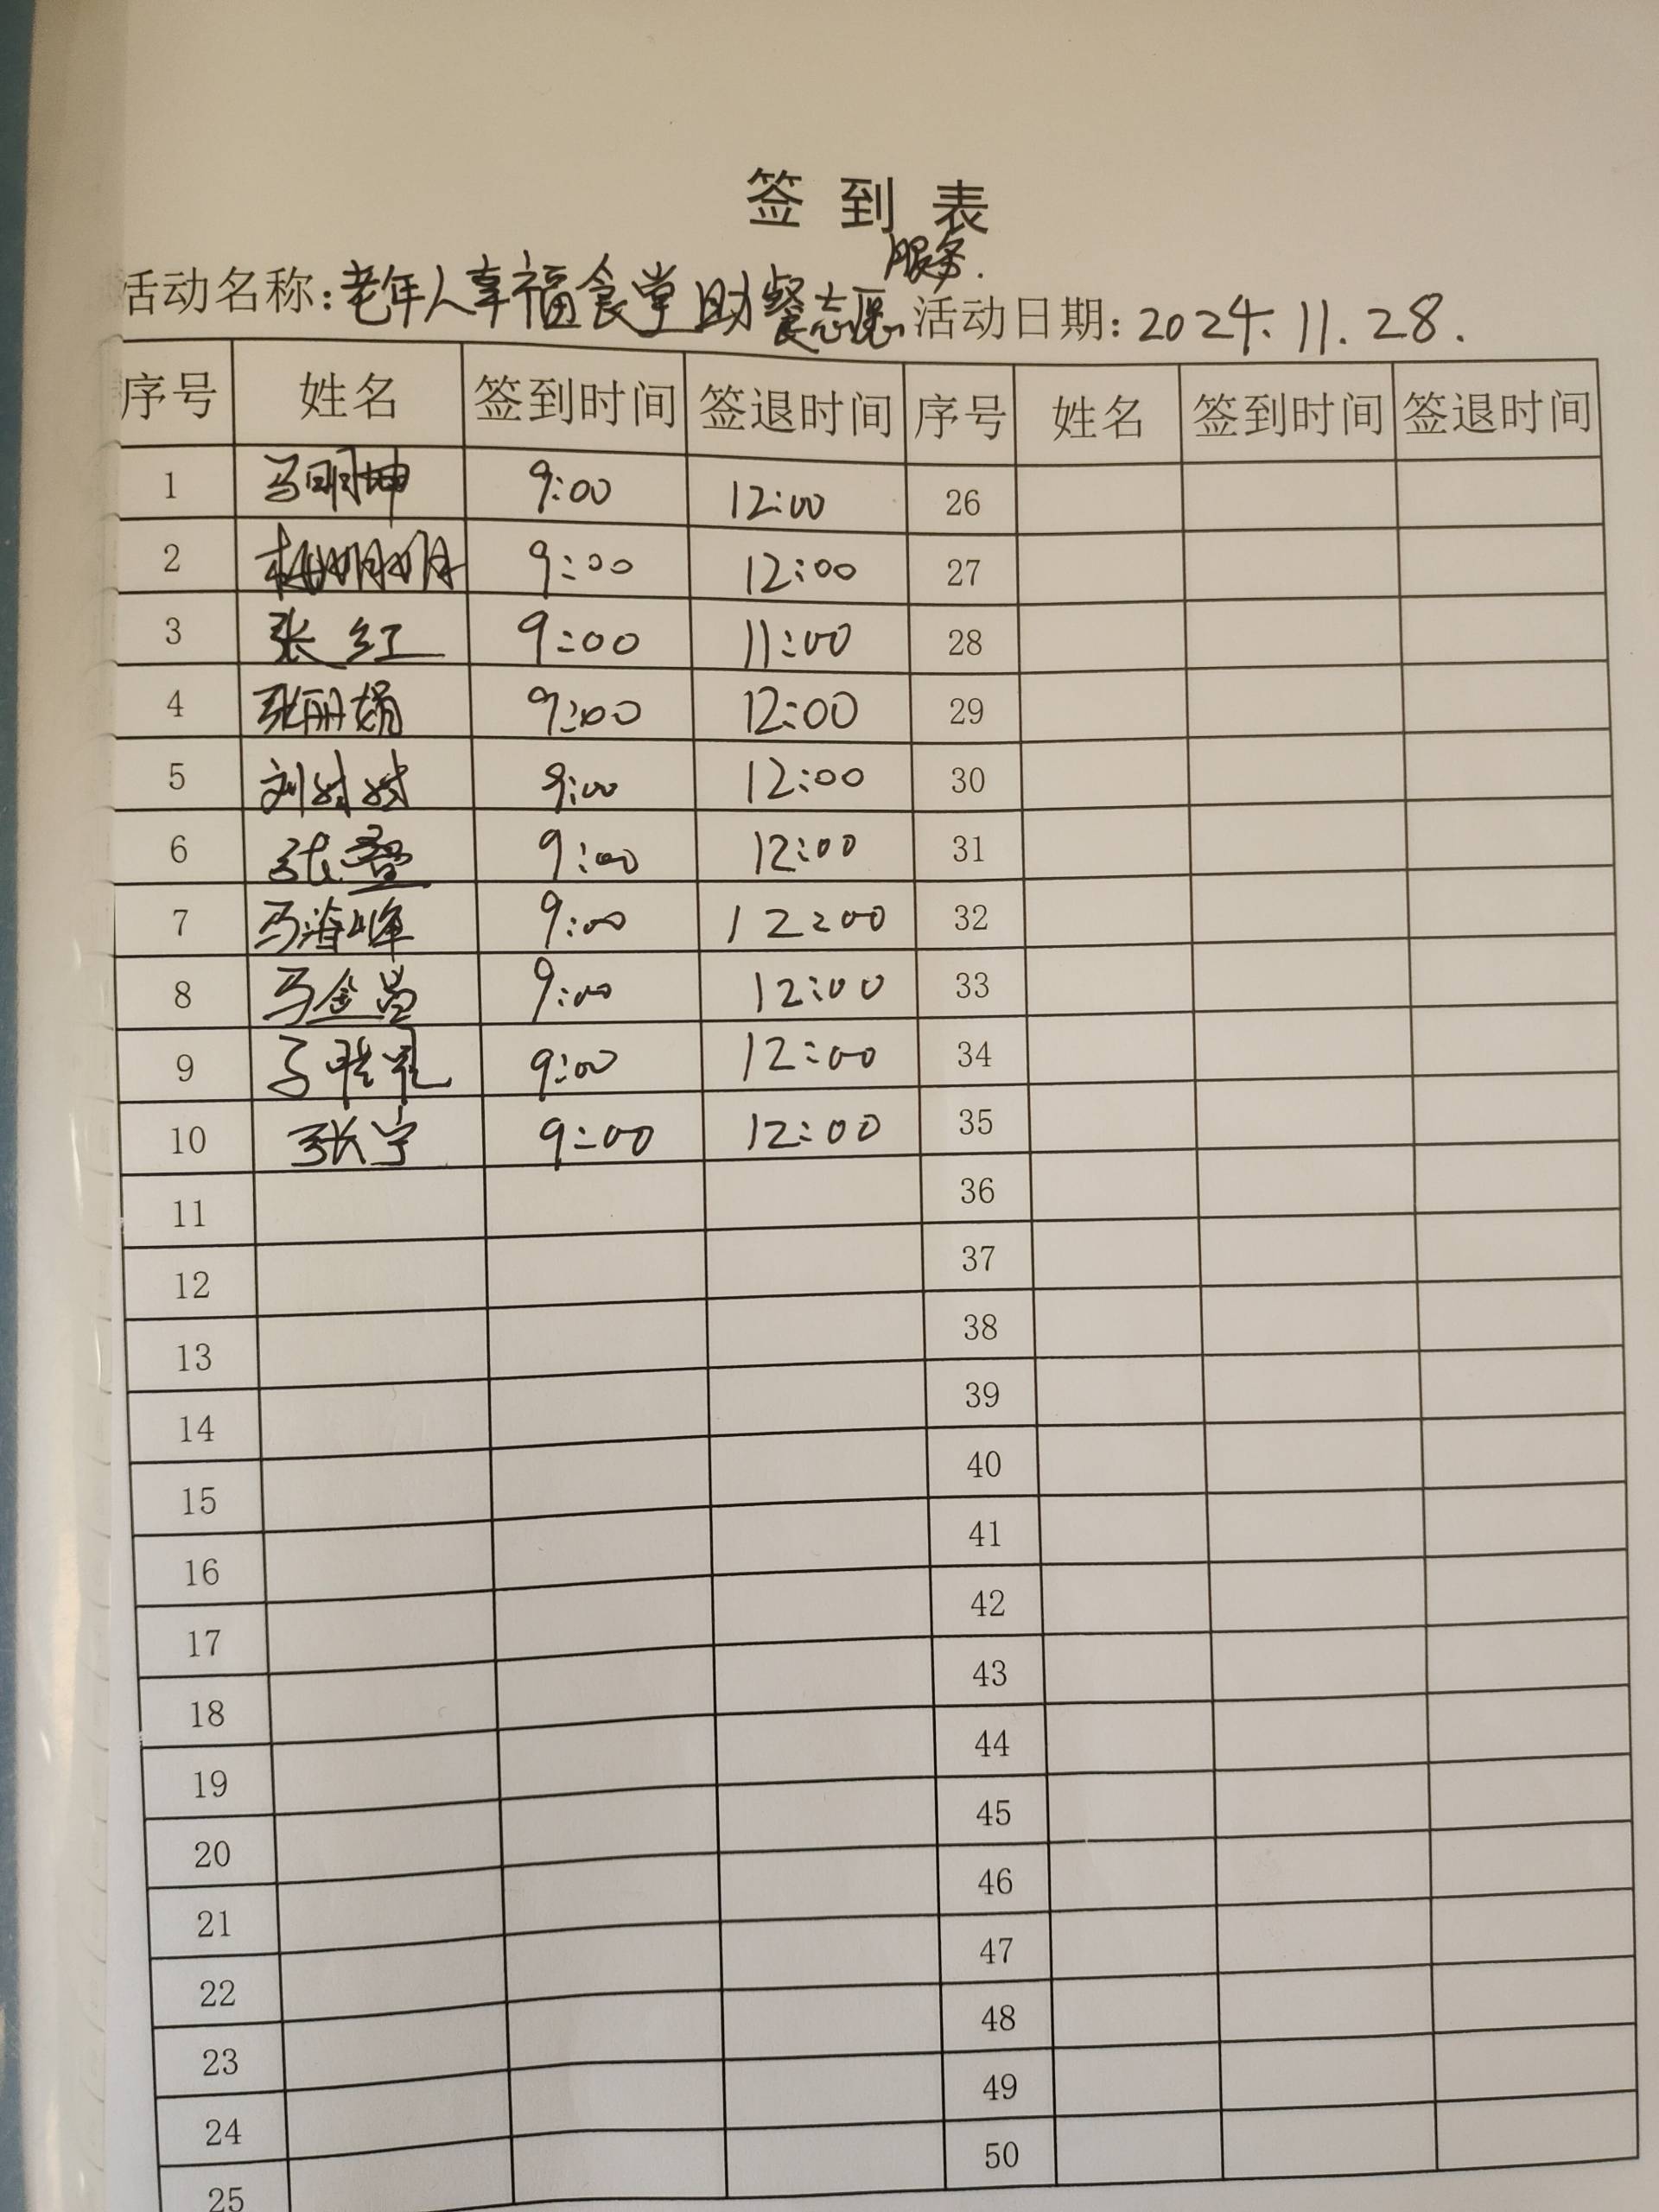 签到表
活动名称:老年人幸福食堂助餐志愿服务. 活动日期: 2024.11.28.
序号 姓名 签到时间 签退时间 序号 姓名 签到时间 签退时间
1 马明坤 9:00 12:00 26
2 9:00 12:00 27
3 张红 9:00 11:00 28
4 张丽娟 9:00 12:00 29
5 9:00 12:00 30
6 9:00 12:00 31
7 马海峰 9:00 12:00 32
8 马金昌 9:00 12:00 33
9 9:00 12:00 34
10 张宇 9:00 12:00 35
11 36
12 37
13 38
14 39
15 40
16 41
17 42
18 43
19 44
20 45
21 46
22 47
23 48
24 49
25 50